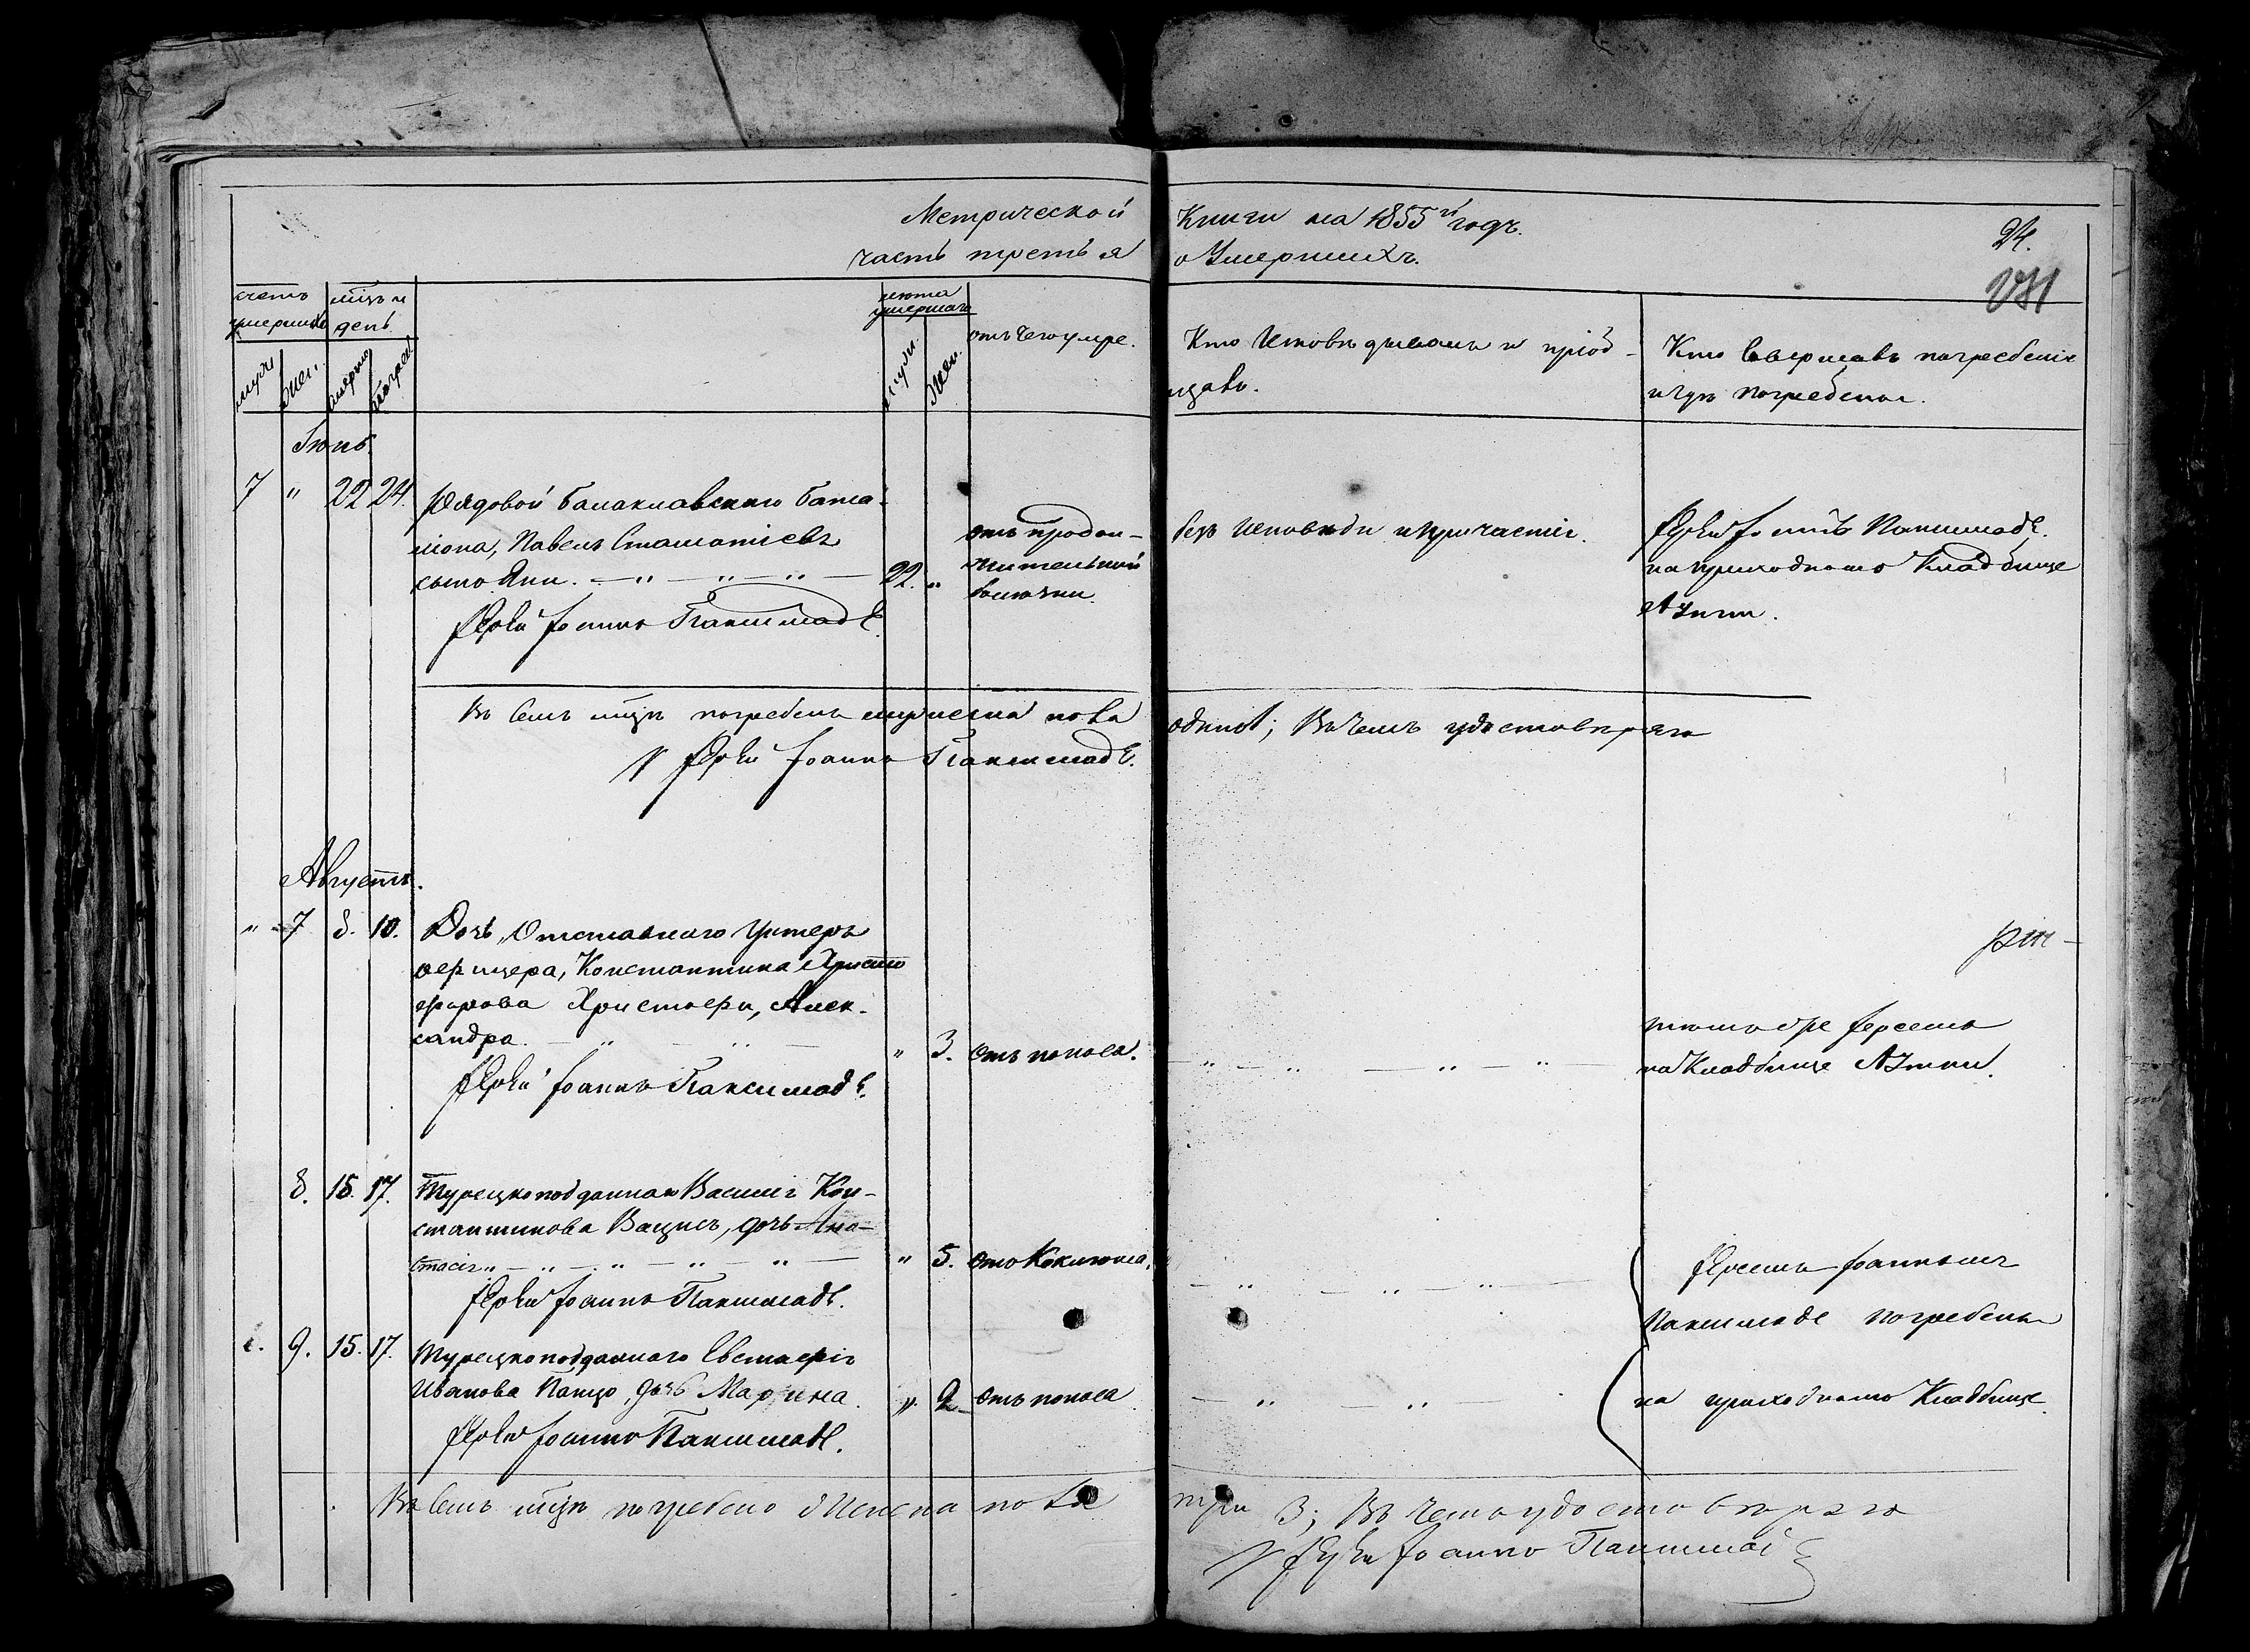 Метрической Книги на 1855й годъ.
часть третья о Умершихъ.
24.
счетъ умершихъ
мцъ и день
лета умершаго
отъ чего умре.
Кто Исповѣдывалъ и пріоб-
щавъ.
Кто Совершавъ погребеніе
и гдѣ погребены.
муж. жен. умерш. погреб. муж. жен.
Іюнь.
7 " 22 24. Рядовой балаклавскаго бата-
ліона, Павелъ Стаматіевъ
22. "
отъ продол-
жительной
болезни.
безъ исповѣди и причастія.
Іерей Іоаннъ Паксимаде.
на приходскомъ Кладбище
Іерей Іоаннъ Паксимаде.
Въ семъ мцѣ погребенъ мужеска пола одинъ 1; Въ чемъ удостовѣряю
Іерей Іоаннъ Паксимаде.
Августъ.
" 7 8. 10. Дочь, Отставнаго Унтеръ
офицера, Константина Христо
форова Христофи, Алек-
сандра.
" 3. отъ поноса.
на Кладбище
Іерей Іоаннъ Паксимаде.
8. 15. 17. Турецкоподданнаго Василія Кон-
стантинова Вацисъ, дочь Ана-
стасія
" 5. отъ Коклюша.
Іерей Іоаннъ Паксимаде.
Іереемъ Іоанномъ
Паксимаде погребены
на приходскомъ Кладбище.
9. 15. 17. Турецкоподданнаго Евстафія
Иванова Папцо, дочь Марина.
" 2 отъ поноса
Іерей Іоаннъ Паксимаде.
Въ семъ мцѣ погребено женска пола три 3; Въ чемъ удостовѣряю
Іерей Іоаннъ Паксимаде